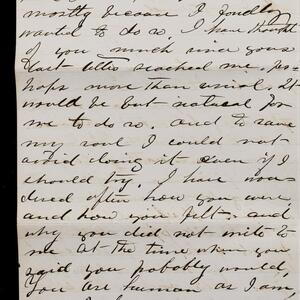 mostly because I fondly
wanted to do so. I have thought
of you much since your
last letter reached me, per-
haps more than usual. It
would be but natural for
me to do so. and to save
my soul I could not
avoid doing it even if I
should try. I have won-
dered often how you were
and how you felt. and
why you did not write to
me at the time when you
said you probably would,
You are human as I am,